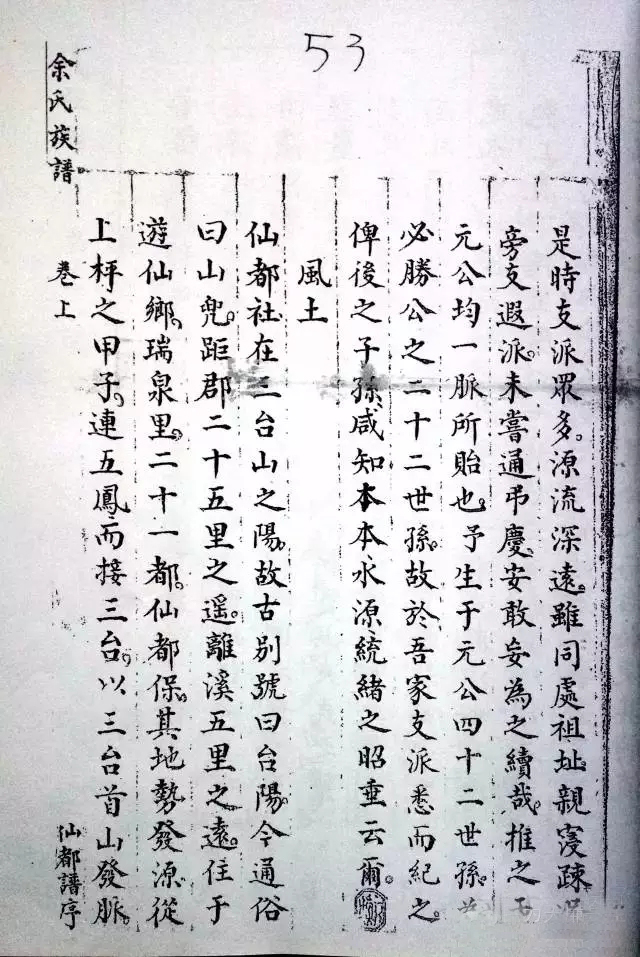 53
是時支派眾多。源流深遠。雖同處祖址。親寖疎
旁支遐派。未嘗通弔慶。安敢妄為之續哉。推之
元公均一脈所貽也。予生于元公四十二世孫。
必勝公之二十二世孫。故於吾家支派悉而紀之。
俾後之子孫。咸知本本水源。統緒之昭垂云爾。
風土
仙都社。在三台山之陽。故古別號曰台陽。今通俗
曰山兜。距郡二十五里之遥。離溪五里之遠。住于
遊仙鄉。瑞泉里。二十一都。仙都保。其地勢發源。從
上枰之甲子。連五鳳而接三台。以三台首山發脈。
余氏族譜
卷上
仙都譜序